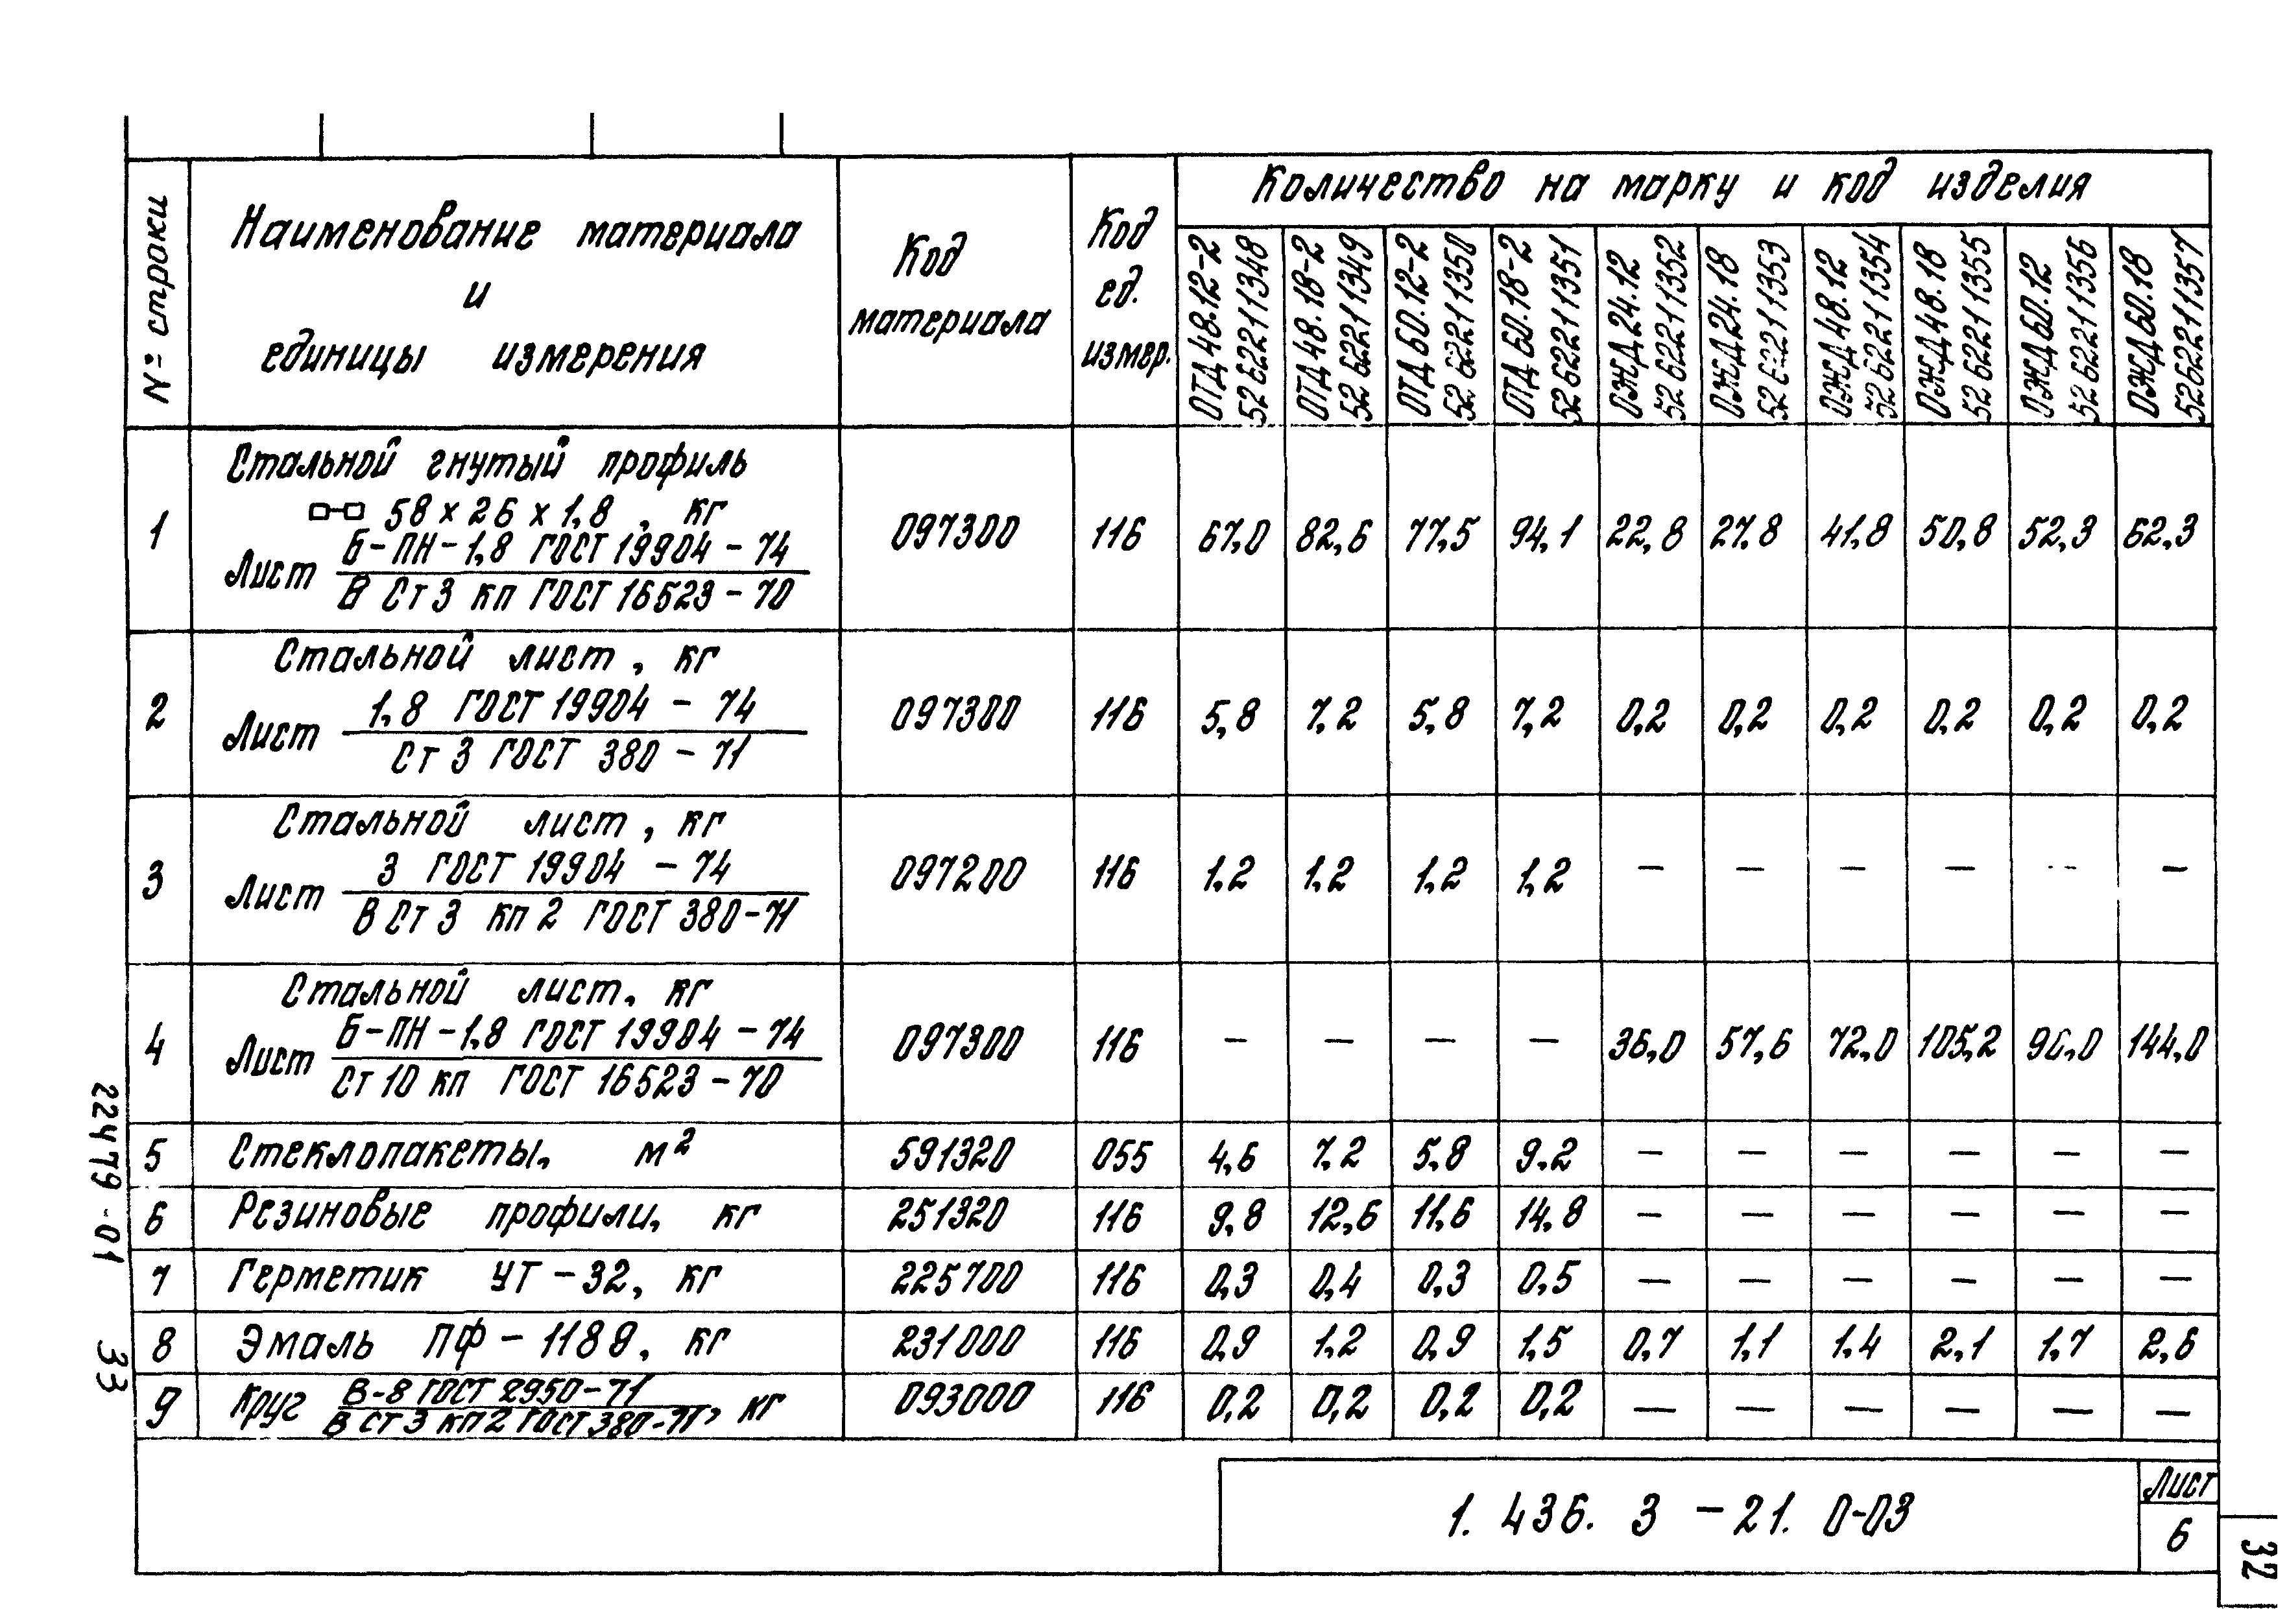 № строки
Наименование материала
и
единицы измерения
Код
материала
Код
ед.
измер.
Количество на марку и код изделия
ОТД 48.12-2
52 6221 1348
ОТД 48.18-2
52 6221 1349
ОТД 60.12-2
52 6221 1350
ОТД 60.18-2
52 6221 1351
ОЖД 24.12
52 6221 1352
ОЖД 24.18
52 6221 1353
ОЖД 48.12
52 6221 1354
ОЖД 48.18
52 6221 1355
ОЖД 60.12
52 6221 1356
ОЖД 60.18
52 6221 1357
1
Стальной гнутый профиль
58 х 26 х 1,8 , кг
Лист Б-ПН-1,8 ГОСТ 19904-74
В Ст 3 кп ГОСТ 16523-70
097300 116 67,0 82,6 77,5 94,1 22,8 27,8 41,8 50,8 52,3 62,3
2
Стальной лист, кг
Лист 1,8 ГОСТ 19904 - 74
Ст 3 ГОСТ 380 - 71
097300 116 5,8 7,2 5,8 7,2 0,2 0,2 0,2 0,2 0,2 0,2
3
Стальной лист, кг
Лист 3 ГОСТ 19904 - 74
В Ст 3 кп 2 ГОСТ 380-71
097200 116 1,2 1,2 1,2 1,2 — — — — — —
4
Стальной лист, кг
Лист Б-ПН-1,8 ГОСТ 19904-74
Ст 10 кп ГОСТ 16523-70
097300 116 — — — — 36,0 57,6 72,0 105,2 96,0 144,0
5 Стеклопакеты, м² 591320 055 4,6 7,2 5,8 9,2 — — — — — —
6 Резиновые профили, кг 251320 116 9,8 12,6 11,6 14,8 — — — — — —
7 Герметик УТ-32, кг 225700 116 0,3 0,4 0,3 0,5 — — — — — —
8 Эмаль ПФ-1189, кг 231000 116 0,9 1,2 0,9 1,5 0,7 1,1 1,4 2,1 1,7 2,6
9 Круг В-8 ГОСТ 2950-71
В Ст 3 кп 2 ГОСТ 380-71, кг
093000 116 0,2 0,2 0,2 0,2 — — — — — —
22479-01 33
1.436.3-21.0-03
Лист
6
32